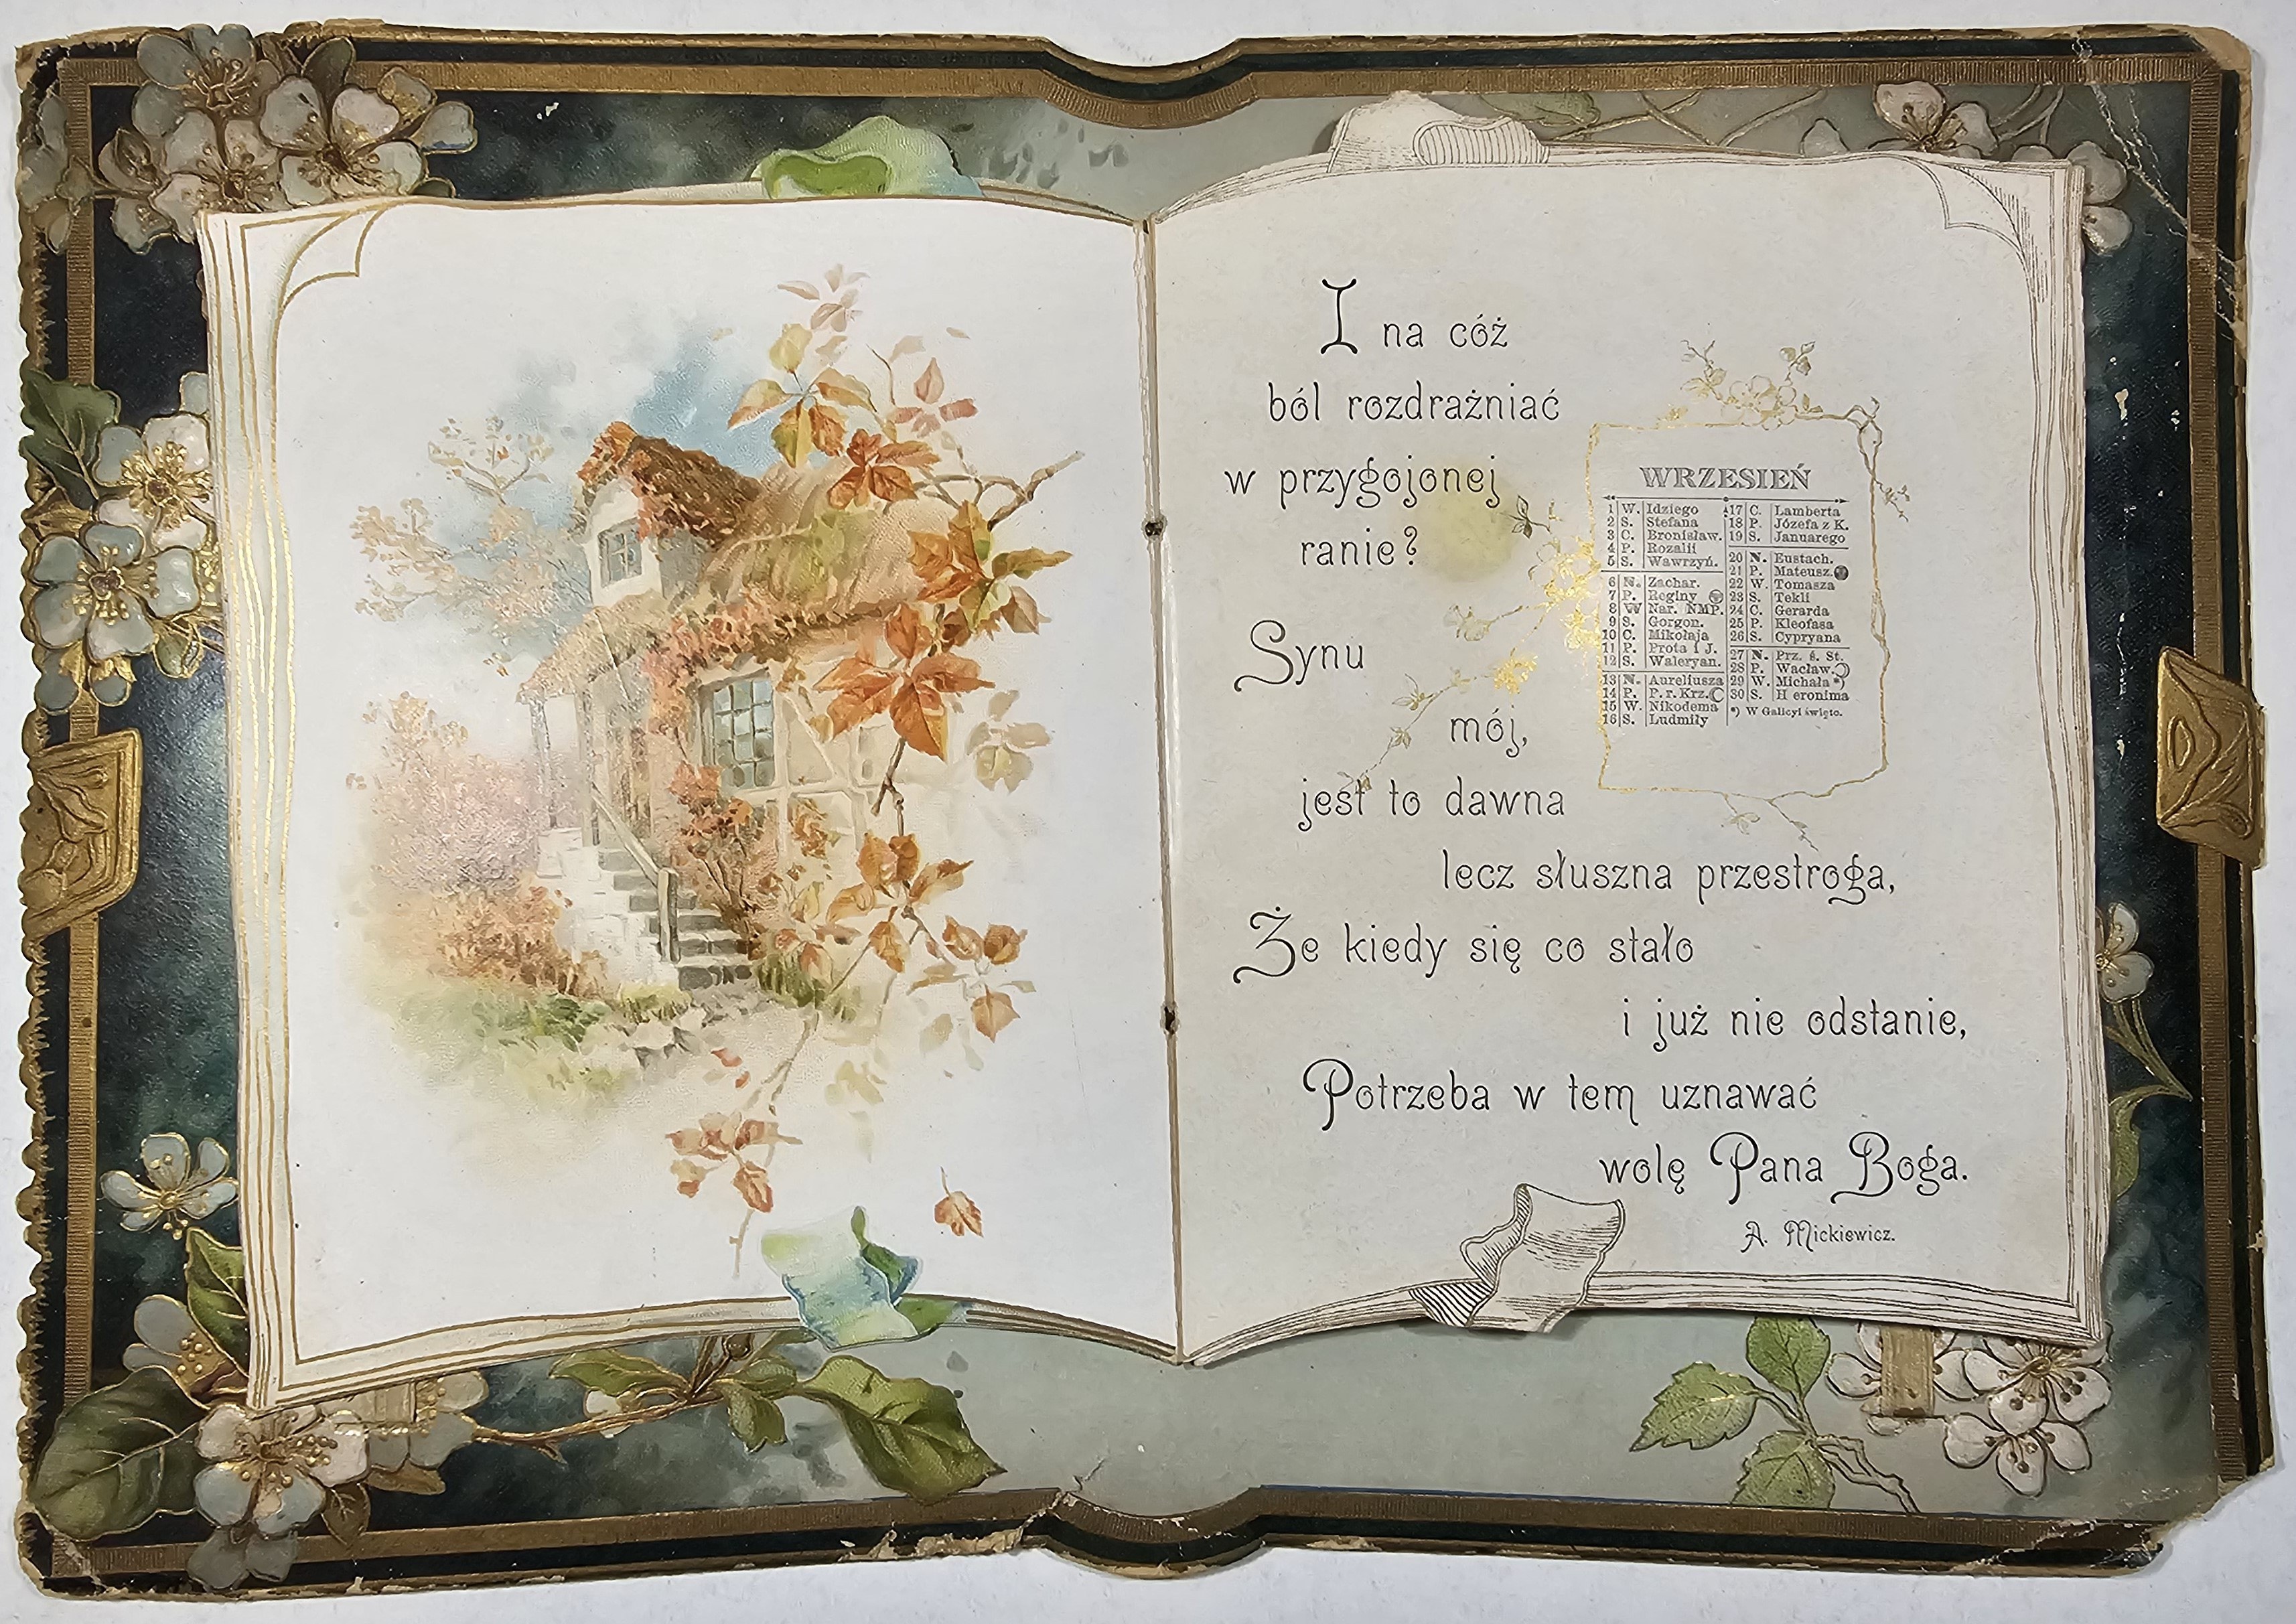 I na cóż
ból rozdrażniać
w przygojonej
ranie?
Synu
mój,
jest to dawna
lecz słuszna przestroga,
Że kiedy się co stało
i już nie odstanie,
Potrzeba w tem uznawać
wolę Pana Boga.
A. Mickiewicz.
WRZESIEŃ
1 W. Idziego
2 S. Stefana
3 C. Bronisław.
4 P. Rozalii
5 S. Wawrzyń.
6 N. Zachar.
7 P. Reginy
8 W Nar. NMP.
9 S. Gorgon.
10 C. Mikołaja
11 P. Prota i J.
12 S. Waleryan.
13 N. Aureliusza
14 P. P. r. Krz.
15 W. Nikodema
16 S. Ludmiły
17 C. Lamberta
18 P. Józefa z K.
19 S. Januarego
20 N. Eustach.
21 P. Mateusz.
22 W. Tomasza
23 S. Tekli
24 C. Gerarda
25 P. Kleofasa
26 S. Cypryana
27 N. Prz. ś. St.
28 P. Wacław.
29 W. Michała *)
30 S. Hieronima
*) W Galicyi święto.